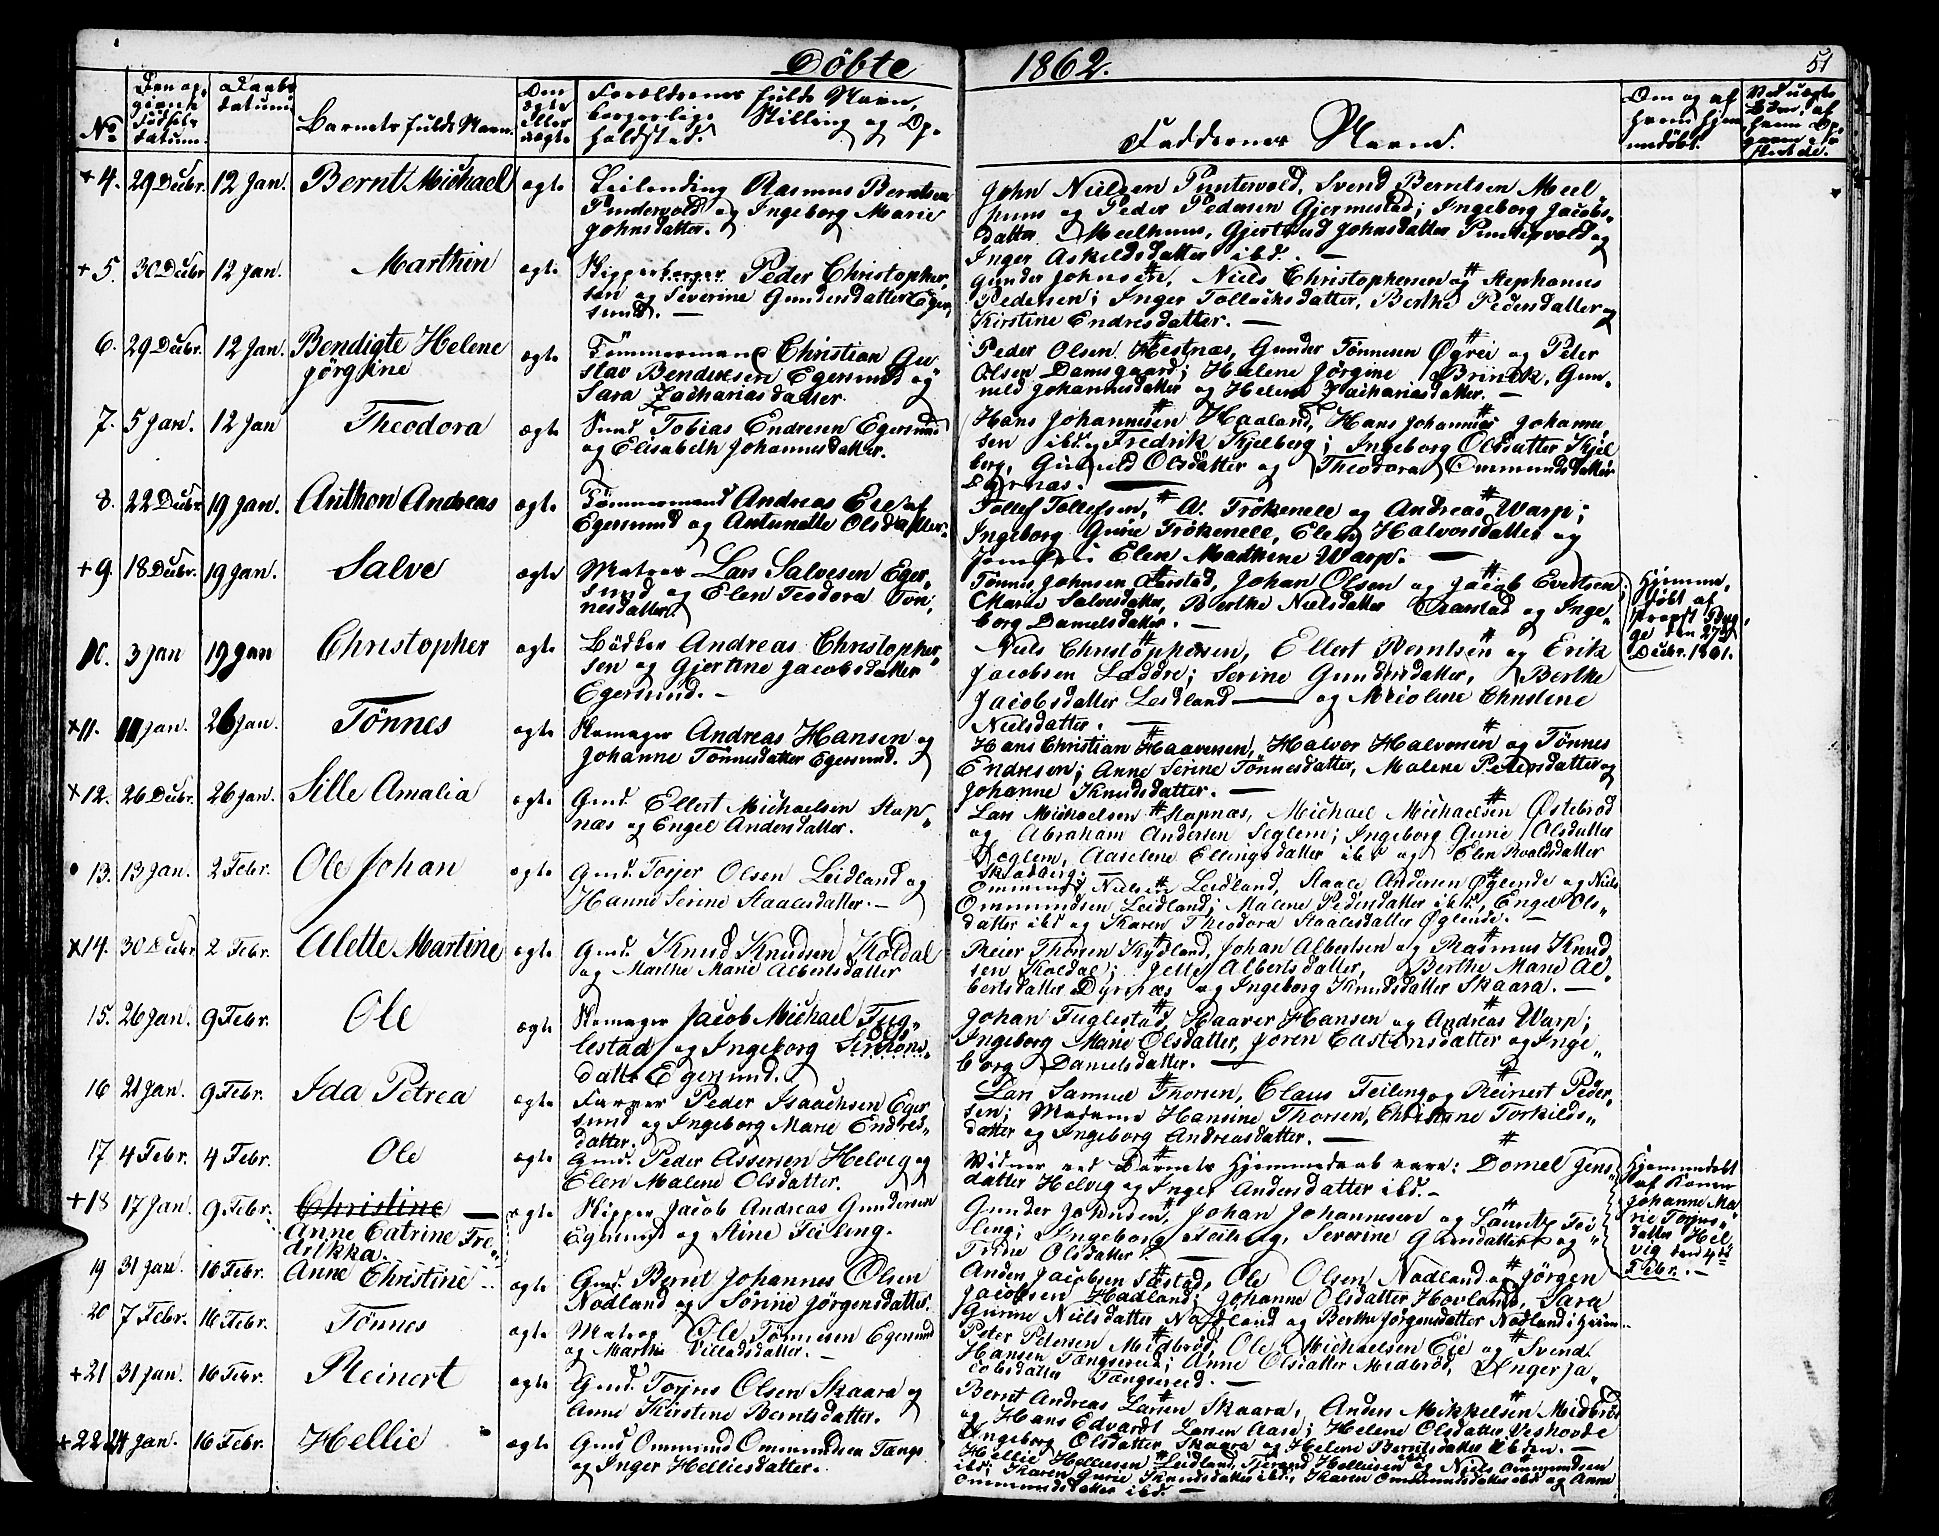 Døbte 1862. 51
No
Den opgivne Fødselsdatum.
Daabsdatum.
Barnets fulde Navn.
Om ægte eller uægte
Forældrenes fulde Navn, borgerlige Stilling og Opholdsted.
Faddernes Navne.
Om og af hvem hjemmedøbt.
+4. 29 Decbr. 12 Jan. Bernt Michael ægte
Leilending Rasmus Berntsen
Puntervold og Ingeborg Marie
Johnsdatter.
John Nielsen Puntervold, Svend Berntsen Meel
huus og Peder Pedersen Gjermestad; Ingeborg Jacobs-
datter Meelhuus, Gjertrud Johnsdatter Puntervold og
Inger Askildsdatter ibd. —
+5. 30 Decbr 12 Jan. Marthin ægte
Skipperborger Peder Christopher-
sen og Severine Gundersdatter Eger-
sund. —
Gunder Johnsen, Niels Christophersen og Stephanus
Pedersen; Inger Tollachsdatter, Berthe Pedersdatter og
Kirstine Endresdatter. —
6. 29 Decbr. 12 Jan. Bendigte Helene
Jørgine ægte
Tømmermand Christian Gu-
stav Bendixsen Egersund og
Sara Zachariasdatter
Peder Olsen Hestnæs, Gunder Tønnesen Øgrei og Peter
Olsen Damsgaard; Helene Jørgine Brinck, Gun-
nild Johannesdatter og Helene Zachariasdatter. —
7. 5 Jan. 12 Jan Theodora ægte
Smed Tobias Endresen Egersund
og Elisabeth Johannesdatter.
Hans Johannesen Haaland, Hans Johannes Johanne-
sen ibd. og Fredrik Kjelberg; Ingeborg Olsdatter Kjel
berg, Gunild Olsdatter og Theodora Ommundsdatter
Dyrnæs. —
8. 22 Decbr 19 Jan. Anthon Andreas ægte
Tømmermand Andreas Eie af
Egersund og Antonette Olsdatter.
Tollef Tollefsen, A. Trökenele og Andreas Warp;
Ingeborg Gurie Trökenele, Elen Halvorsdatter og
Jomfru Elen Mathine Warp. —
+9. 18 Decbr. 19 Jan. Salve ægte
Matros Lars Salvesen Eger-
sund og Elen Teodora Tøn-
nesdatter.
Tønnes Johnsen Aarstad, Johan Olsen og Jacob Evertsen;
Marie Salvesdatter, Berthe Nielsdatter Aarstad og Inge-
borg Danielsdatter. —
Hjemme-
døbt af
Provst Bug-
ge den 27de
Decbr. 1861.
10. 3 Jan 19 Jan Christopher ægte
Bødker Andreas Christopher-
sen og Gjertine Jacobsdatter
Egersund. —
Niels Christophersen, Ellert Berntsen og Erik
Jacobsen Læddre; Serine Gundersdatter, Berthe
Jacobsdatter Leidland — og Meiolene Christene
Nielsdatter. —
×11. 11 Jan. 26 Jan. Tønnes ægte
Skomager Andreas Hansen og
Johanne Tønnesdatter Egersund.
Hans Christian Haaversen, Halvor Halvorsen og Tønnes
Endresen; Anne Serine Tønnesdatter, Malene Petersdatter og
Johanne Knudsdatter. —
×12. 26 Decbr. 26 Jan. Sille Amalia ægte
Gmd. Ellert Michaelsen Stap-
næs og Engel Andersdatter.
Lars Michaelsen Stapnæs, Michael Michaelsen Østebrød
og Abraham Andersen Seglem; Ingeborg Gurie Olsdatter
Seglem, Aaselene Ellingsdatter ibd og Elen Roaldsdatter
Skadberg. —
13. 13 Jan. 2 Febr. Ole Johan ægte
Gmd. Torjer Olsen Leidland og
Hanne Serine Staalesdatter. —
Ommund Nielsen Leidland, Staale Andersen Øglende og Niels
Ommundsen Leidland; Malene Pedersdatter ibd, Engel Ols-
datter ibd og Karen Theodora Staalesdatter Øglende. —
×14. 30 Decbr 2 Febr. Alette Martine ægte
Gmd. Knud Knudsen Koldal
og Marthe Marie Albertsdatter
Reier Thorsen Kydland, Johan Albertsen og Rasmus Knud
sen Koldal; Jette Albertsdatter, Berthe Marie Al-
bertsdatter Dyrnæs og Ingeborg Knudsdatter Skaara. —
15. 26 Jan. 9 Febr. Ole ægte
Skomager Jacob Michael Fug-
lestad og Ingeborg Serine Ols-
datter Egersund.
Johan Fuglestad, Haaver Hansen og Andreas Warp;
Ingeborg Marie Olsdatter, Joren Eastensdatter og Inge-
borg Danielsdatter. —
16 21 Jan. 9 Febr. Ida Petrea ægte
Farver Peder Isaachsen Eger
sund og Ingeborg Marie Endres-
datter.
Lars Samuel Thorsen, Claus Feiling og Reinert Peder-
sen; Madame Hansine Thorsen, Christine Torkilds-
datter og Ingeborg Andreasdatter. —
17 4 Febr. 4 Febr. Ole ægte
Gmd. Peder Assersen Helvig og
Elen Malene Olsdatter.
Vidner ved Barnets Hjemmedaab vare: Dorthe Jens-
datter Helvig og Inger Andersdatter ibd. —
Hjemmedøbt
af Konen
Johanne Ma-
rie Torjus-
datter Hel
vig den 4de
Febr. —
+18 17 Jan. 9 Febr. Christine —
Anne Catrine Fre-
drikka. ægte
Skipper Jacob Andreas Gundersen
Egersund og Stine Feileng.
Gunder Johnsen, Johan Johannesen og Lauritz Fei-
ling; Ingeborg Feiling, Severine Gunsdatter og
Trine Olsdatter. —
19 31 Jan. 16 Febr. Anne Christine ægte
Gmd. Bernt Johannes Olsen
Nodland og Sørine Jørgensdatter.
Anders Jacobsen Sæstad, Ole Olsen Nodland og Jørgen
Jacobsen Hadland; Johanne Olsdatter Hovland, Sara
Gurine Nielsdatter Nodland og Berthe Jørgensdatter Nodland i Heim.
20 7 Febr. 16 Febr. Tønnes ægte
Matros Ole Tønnesen Egersund
og Marthe Villadsdatter. —
Peter Petersen Midbrød, Ole Michaelsen Eie og Svend
Hansen Tængsereid; Anne Olsdatter Midbrød, Inger Ja-
cobsdatter Tængsereid. —
+21 31 Jan. 16 Febr. Reinert ægte
Gmd. Torjus Olsen Skaara og
Anne Kirstine Berntsdatter.
Bernt Andreas Larsen Skaara, Anders Mikkelsen Midbrød
og Hans Edvardt Larsen Aase; Helene Olsdatter Veshovde
Ingeborg Olsdatter Skaara og Helene Berntsdatter ibiden. —
+22 24 Jan. 16 Febr. Hellie ægte
Gmd Ommund Ommundsen Tængs
og Inger Helliesdatter.
Hellie Helliesen Leidland, Tjerand Helliesen og Niels Ommundsen
ibd; Karen Gurie Knudsdatter ibd., Karen Ommundsdatter ibd og Anne
Ommundsdatter ibd. —